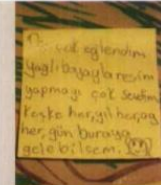 çok eğlendim
yağlıboyayla resim
yapmayı çok sevdim
keşke her,yıl her,ay
her,gün buraya
gelebilsem.